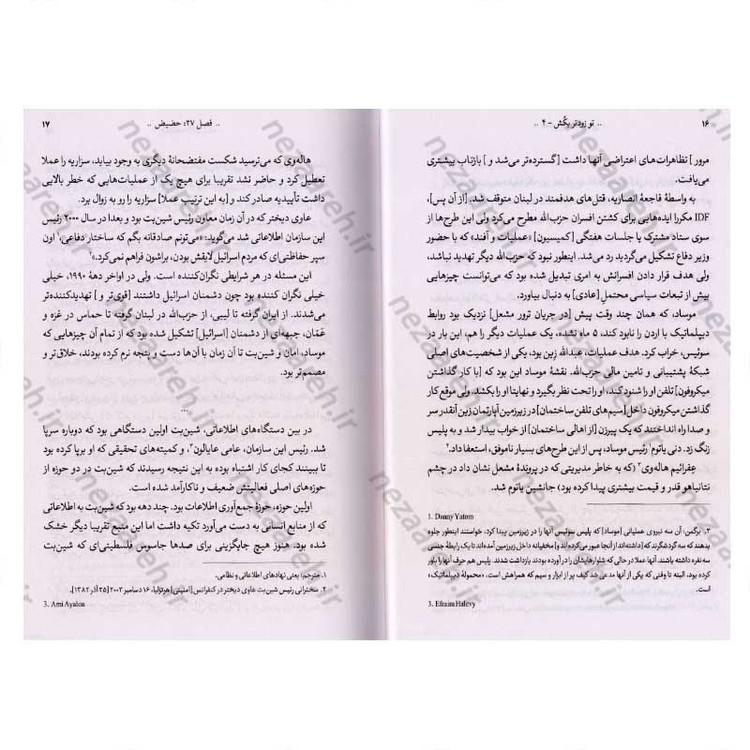 ۱۶ .. تو زودتر بکُش - ۴ ..
مرور ] تظاهرات‌های اعتراضی آنها داشت [ گسترده‌تر می‌شد و ] بازتاب بیشتری
می‌یافت.
به واسطهٔ فاجعهٔ انصاریه، قتل‌های هدفمند در لبنان متوقف شد. [از آن پس]،
IDF مکررا ایده‌هایی برای کشتن افسران حزب‌الله مطرح می‌کرد ولی این طرح‌ها از
سوی ستاد مشترک یا جلسات هفتگی [کمیسیون] «عملیات و آفند» که با حضور
وزیر دفاع تشکیل می‌گردید رد می‌شد. اینطور نبود که حزب‌الله دیگر تهدید نباشد،
ولی هدف قرار دادن افسرانش به امری تبدیل شده بود که می‌توانست چیزهایی
بیش از تبعات سیاسی محتملِ [عادی] به دنبال بیاورد.
موساد، که همان چند وقت پیش [در جریان ترور مشعل] نزدیک بود روابط
دیپلماتیک با اردن را نابود کند، ۵ ماه نشده، یک عملیات دیگر را هم، این بار در
سوئیس، خراب کرد. هدف، عبدالله زین بود، یکی از شخصیت‌های اصلی
شبکهٔ پشتیبانی و تامین مالی حزب‌الله. نقشهٔ موساد این بود که [با کار گذاشتن
میکروفون] تلفن او را شنود کند، او را تحت نظر بگیرد و نهایتا او را بکشد. ولی موقع کار
گذاشتن میکروفون داخل [سیم‌های تلفن ساختمان] در زیرزمین آپارتمان زین آنقدر سر
و صدا راه انداختند که یک پیرزن [از اهالی ساختمان] از خواب بیدار شد و به پلیس
زنگ زد. دنی یاتوم۱ رئیس موساد، پس از این طرح‌های بسیار ناموفق، استعفا داد.۲
عِفرائیم هاله‌وی۳ (که به خاطر مدیریتی که در پروندهٔ مشعل نشان داد در چشم
نتانیاهو قدر و قیمت بیشتری پیدا کرده بود) جانشین یاتوم شد.
1. Danny Yatom
۲. برگمن: آن سه نیروی عملیاتی [موساد] که پلیس سوئیس آنها را در زیرزمین پیدا کرد، خواستند اینطور جلوه
بدهند که سه گردشگرند که [داشته‌اند از آنجا عبور می‌کرده‌اند و] مخفیانه داخل زیرزمین آمده‌اند تا یک رابطهٔ جنسی
سه نفره داشته باشند. آنها عملا در حالی که شلوارهایشان را درآورده بودند بازداشت شدند. پلیس هم حرف آنها را باور
کرده بود، البته تا وقتی که یکی از آنها مدعی شد کیف پر از ابزار و سیم که همراهش است، «محمولهٔ دیپلماتیک»
است.
3. Efraim Halevy
.. فصل ۲۷: حضیض .. ۱۷
هاله‌وی که می‌ترسید شکست مفتضحانهٔ دیگری به وجود بیاید، سزاریه را عملا
تعطیل کرد و حاضر نشد تقریبا برای هیچ یک از عملیات‌هایی که خطر بالایی
داشت تأییدیه صادر کند و [به این ترتیب عملا] سزاریه را رو به زوال برد.
عاوی دیختر که در آن زمان معاون رئیس شین‌بت بود و بعدا در سال ۲۰۰۰ رئیس
این سازمان اطلاعاتی شد می‌گوید: «می‌تونم صادقانه بگم که ساختار دفاعی۱، اون
سپر حفاظتی‌ای که مردم اسرائیل لایقش بودن، براشون فراهم نمی‌کرد.»۲
این مسئله در هر شرایطی نگران‌کننده است. ولی در اواخر دههٔ ۱۹۹۰، خیلی
خیلی نگران کننده بود چون دشمنان اسرائیل داشتند [قوی‌تر و ] تهدیدکننده‌تر
می‌شدند. از ایران گرفته تا لیبی، از حزب‌الله در لبنان گرفته تا حماس در غزه و
عَمّان، جبهه‌ای از دشمنان [اسرائیل] تشکیل شده بود که از تمام آن چیزهایی که
موساد، امان و شین‌بت تا آن زمان با آن‌ها دست و پنجه نرم کرده بودند، خلاق‌تر و
مصمم‌تر بود.
...
در بین دستگاه‌های اطلاعاتی، شین‌بت اولین دستگاهی بود که دوباره سرپا
شد. رئیس این سازمان، عامی عایالون۳، و کمیته‌های تحقیقی که او برپا کرده بود
تا ببینند کجای کار اشتباه بوده به این نتیجه رسیدند که شین‌بت در دو حوزه از
حوزه‌های اصلی فعالیتش ضعیف و ناکارآمد شده است.
اولین حوزه، حوزهٔ جمع‌آوری اطلاعات بود. چند دهه بود که شین‌بت به اطلاعاتی
که از منابع انسانی به دست می‌آورد تکیه داشت اما این منبع تقریبا دیگر خشک
شده بود. هنوز هیچ جایگزینی برای صدها جاسوس فلسطینی‌ای که شین‌بت
۱. مترجم: یعنی نهادهای اطلاعاتی و نظامی.
۲. سخنرانی رئیس شین‌بت عاوی دیختر در کنفرانس [امنیتی] هرتزلیا، ۱۶ دسامبر ۲۰۰۳ [۲۵ آذر ۱۳۸۲].
3. Ami Ayalon
nezaareh.ir